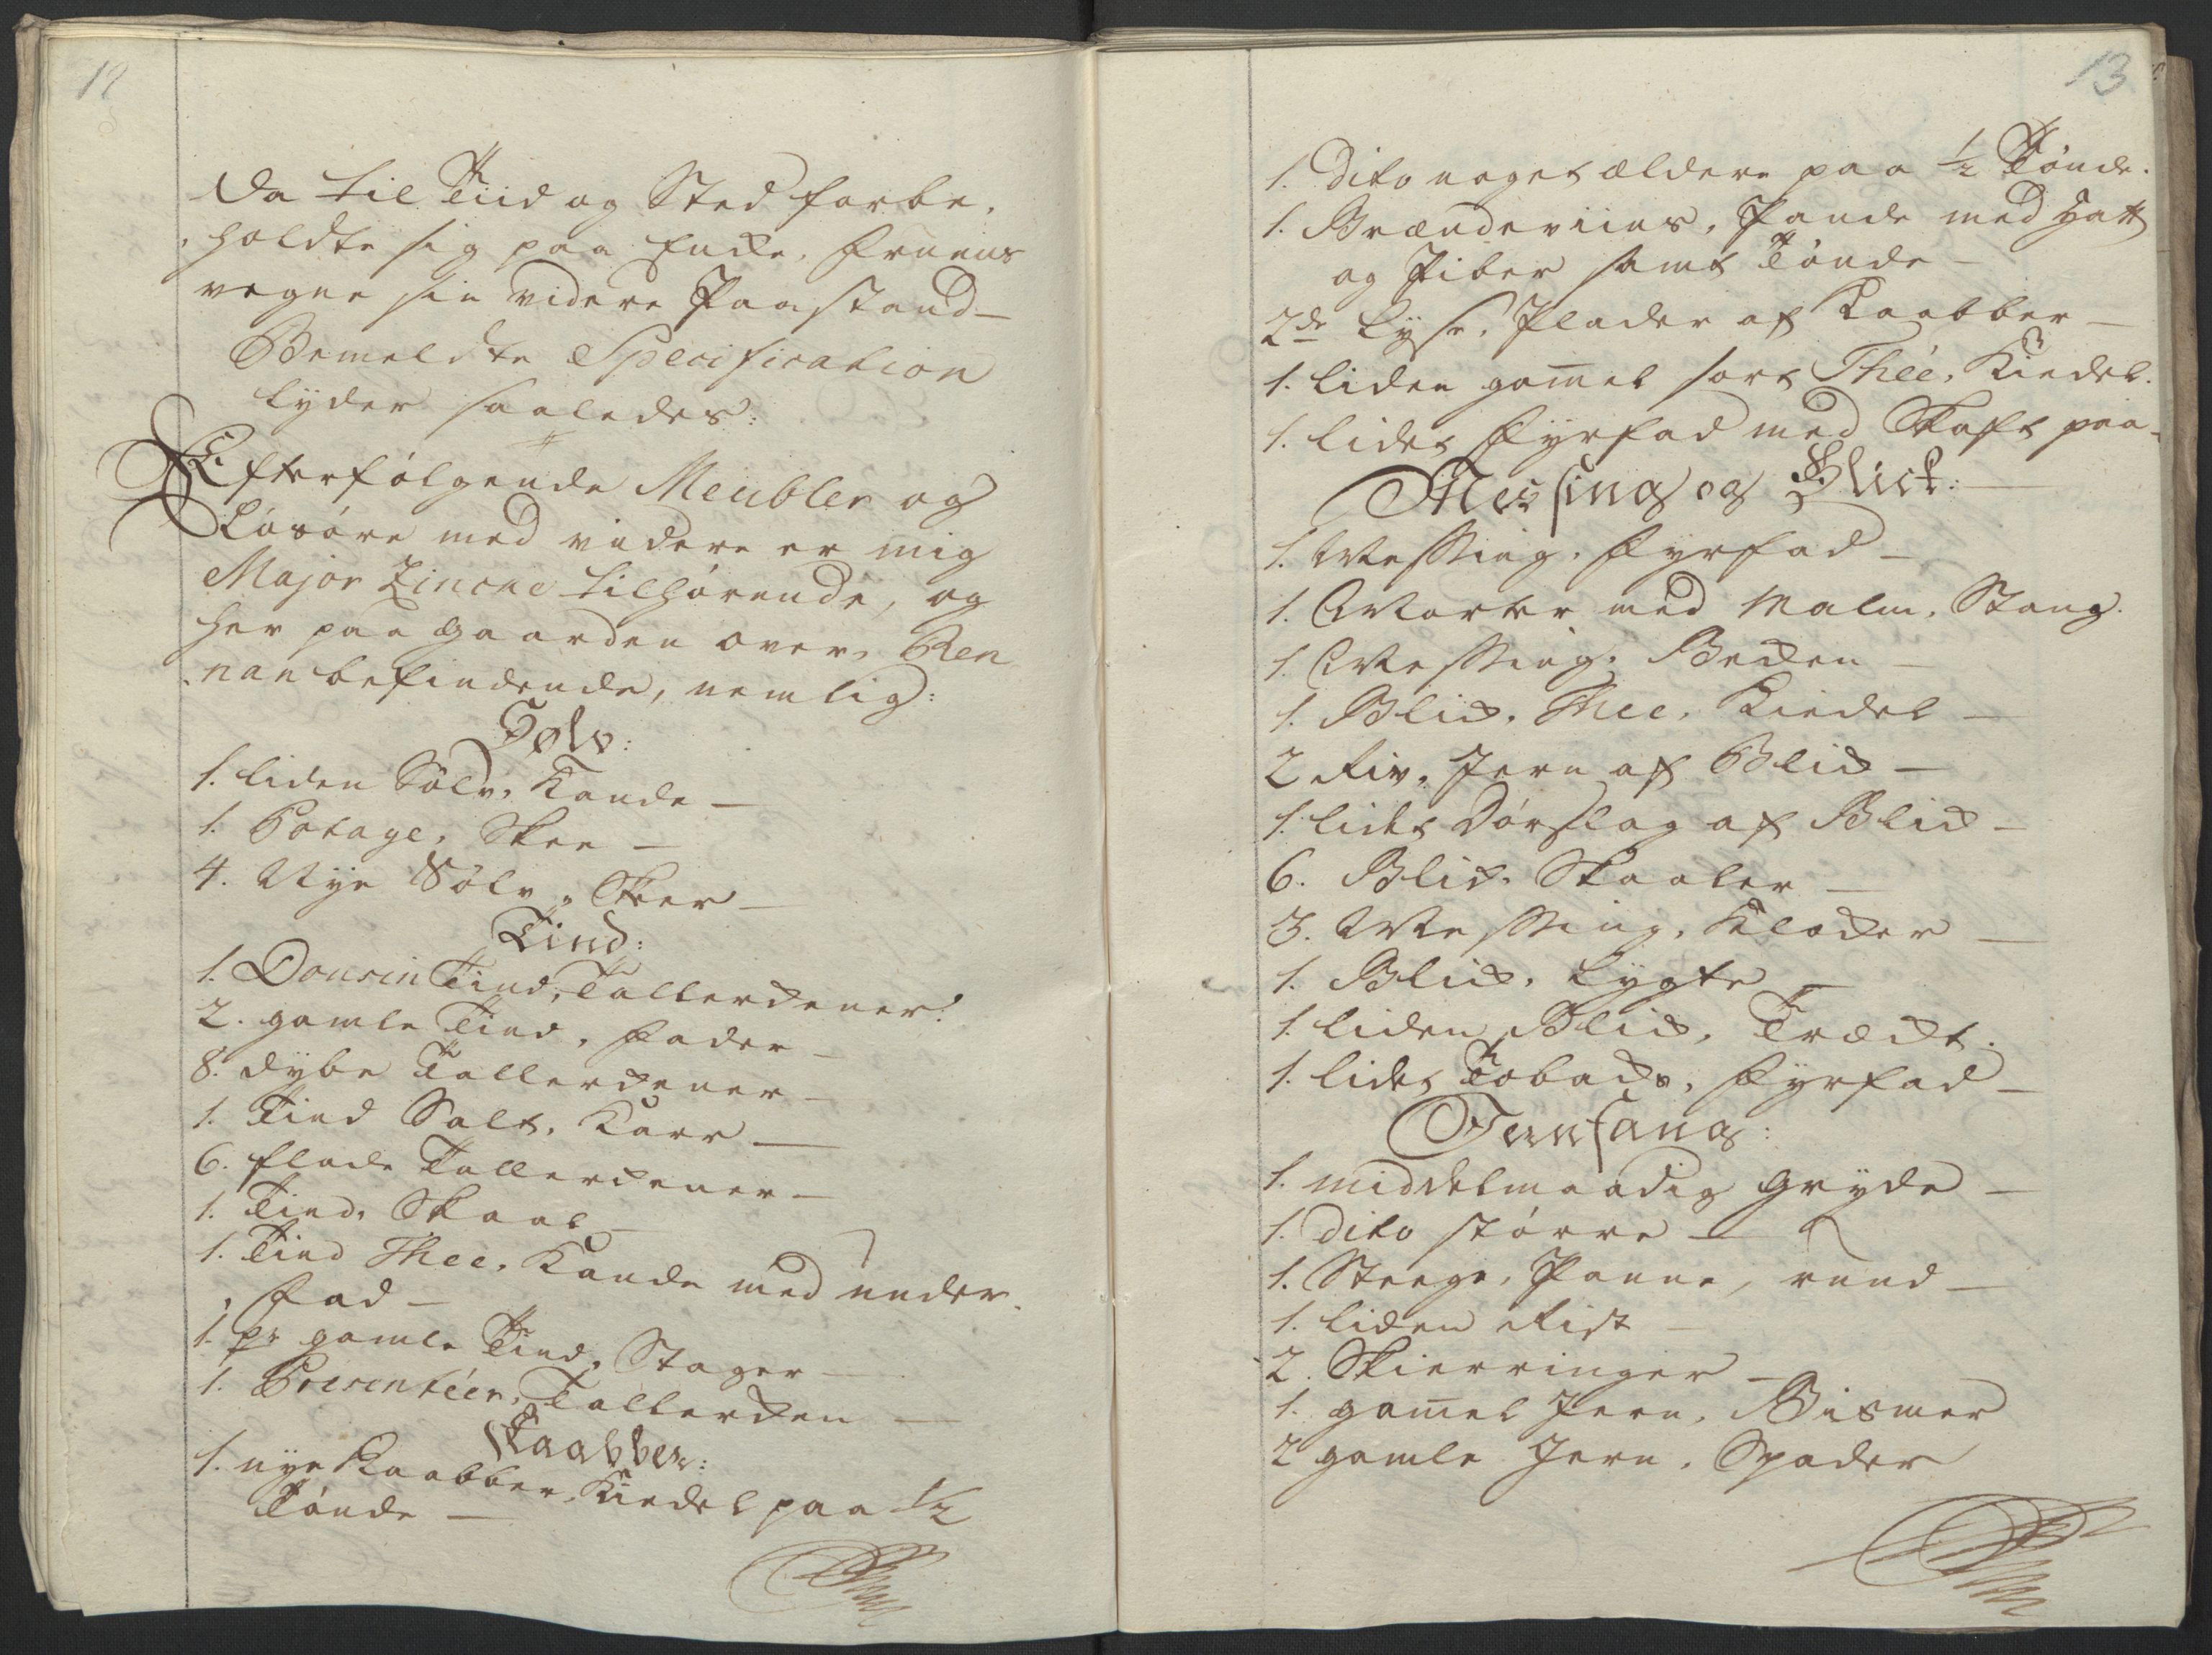 12
da til Tiid og Sted forbe,
holdte sig paa Encke, Fruens
vegne sin videre Paastand_
Bemeldte Specification
lyder saaledes:
Efterfølgende Meubler og
Løsøre med videre er mig
Major Zincke tilhørende, og
her paa Gaarden over, Ren
nan befindende, nemlig:
Sølv:
1. liden Sølv, Kande _
1. Potage, Skee _
4. Nye Sølv, Skeer _
Tind:
1. Dousin Tind, Tallerckener.
2. gamle Tind, Fader _
8. dybe Tallerckener _
1. Tind Salt, Karr _
6. flade Tallerckener _
1. Tind, Skaal _
1. Tind Thee, Kande med under,
, Fad _
1. pr gamle Tind, Stager _
1. Presenteer, Tallercken _
Kaabber:
1. nye Kaabber, Kiedel paa 1/2
Tønde _
13
1. Dito noget ældere paa 1/2 Tønde.
1. Brændeviins, Pande med Hatt
og Piber samt Tønde _
2de Lyse, Plader af Kaabber _
1. liden gam̅el sort Theé, Kiedel.
1. lidet Fyrfad med Skaft paa _
Messing og Blick: _
1. Messing, Fyrfad _
1. Morter med Malm, Stang.
1. Messing, Becken _
1. Blick, Thee, Kiedel _
2 Riv, Jern af Blick _
1. lidet Dørslag af Blick _
6. Blick, Skaaler _
3. Messing, Klocker _
1. Blick, Lygte _
1. liden Blick, Trægt.
1. lidet Tobacks, Fyrfad _
Jernfang:
1. middelmaadig Gryde _
1. Dito større _
1. Steege, Panne, rund _
1. liden Rist _
2. Skierringer _
1. gam̅el Jern, Bismer
2 gamle Jern, Spader